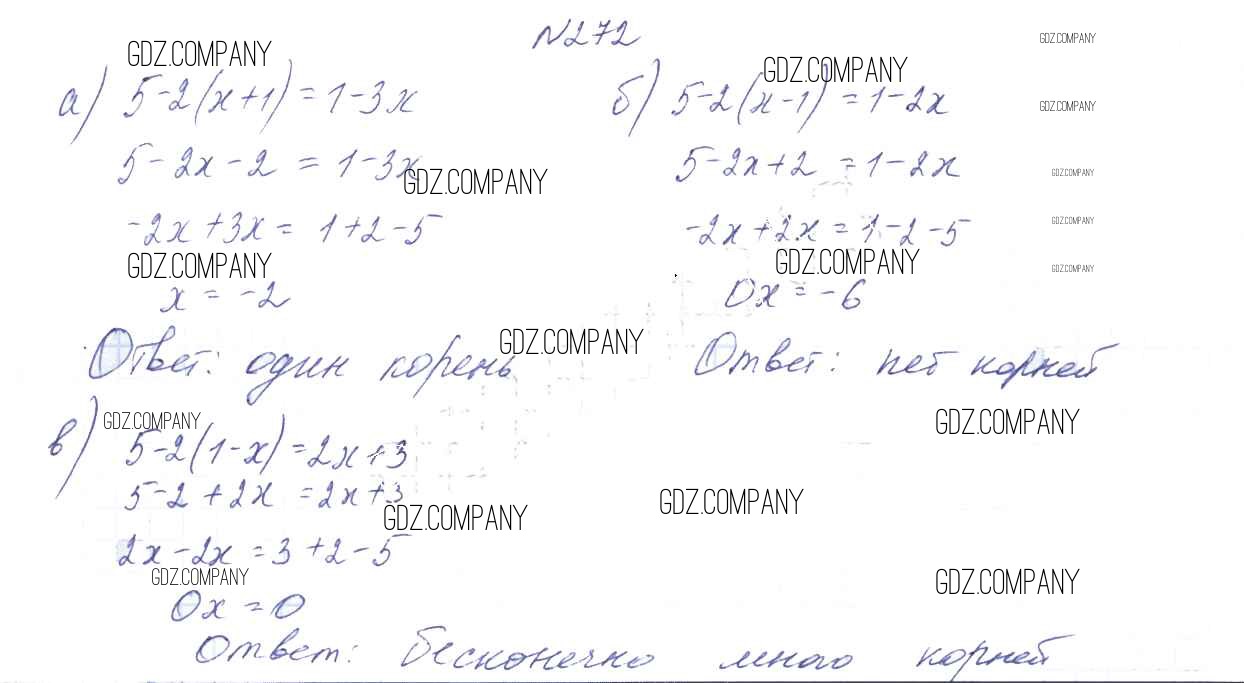 №272
GDZ.COMPANY
GDZ.COMPANY
GDZ.COMPANY
а) 5-2(х+1) = 1-3х
б) 5-2(х-1) = 1-2х
GDZ.COMPANY
5-2х-2 = 1-3х
5-2х+2 = 1-2х
GDZ.COMPANY
GDZ.COMPANY
-2х+3х = 1+2-5
-2х+2х = 1-2-5
GDZ.COMPANY
GDZ.COMPANY
GDZ.COMPANY
GDZ.COMPANY
х = -2
0х = -6
GDZ.COMPANY
Ответ: один корень
Ответ: нет корней
GDZ.COMPANY
GDZ.COMPANY
в) 5-2(1-х) = 2х+3
5-2+2х = 2х+3
GDZ.COMPANY
GDZ.COMPANY
2х-2х = 3+2-5
GDZ.COMPANY
GDZ.COMPANY
0х = 0
Ответ: бесконечно много корней